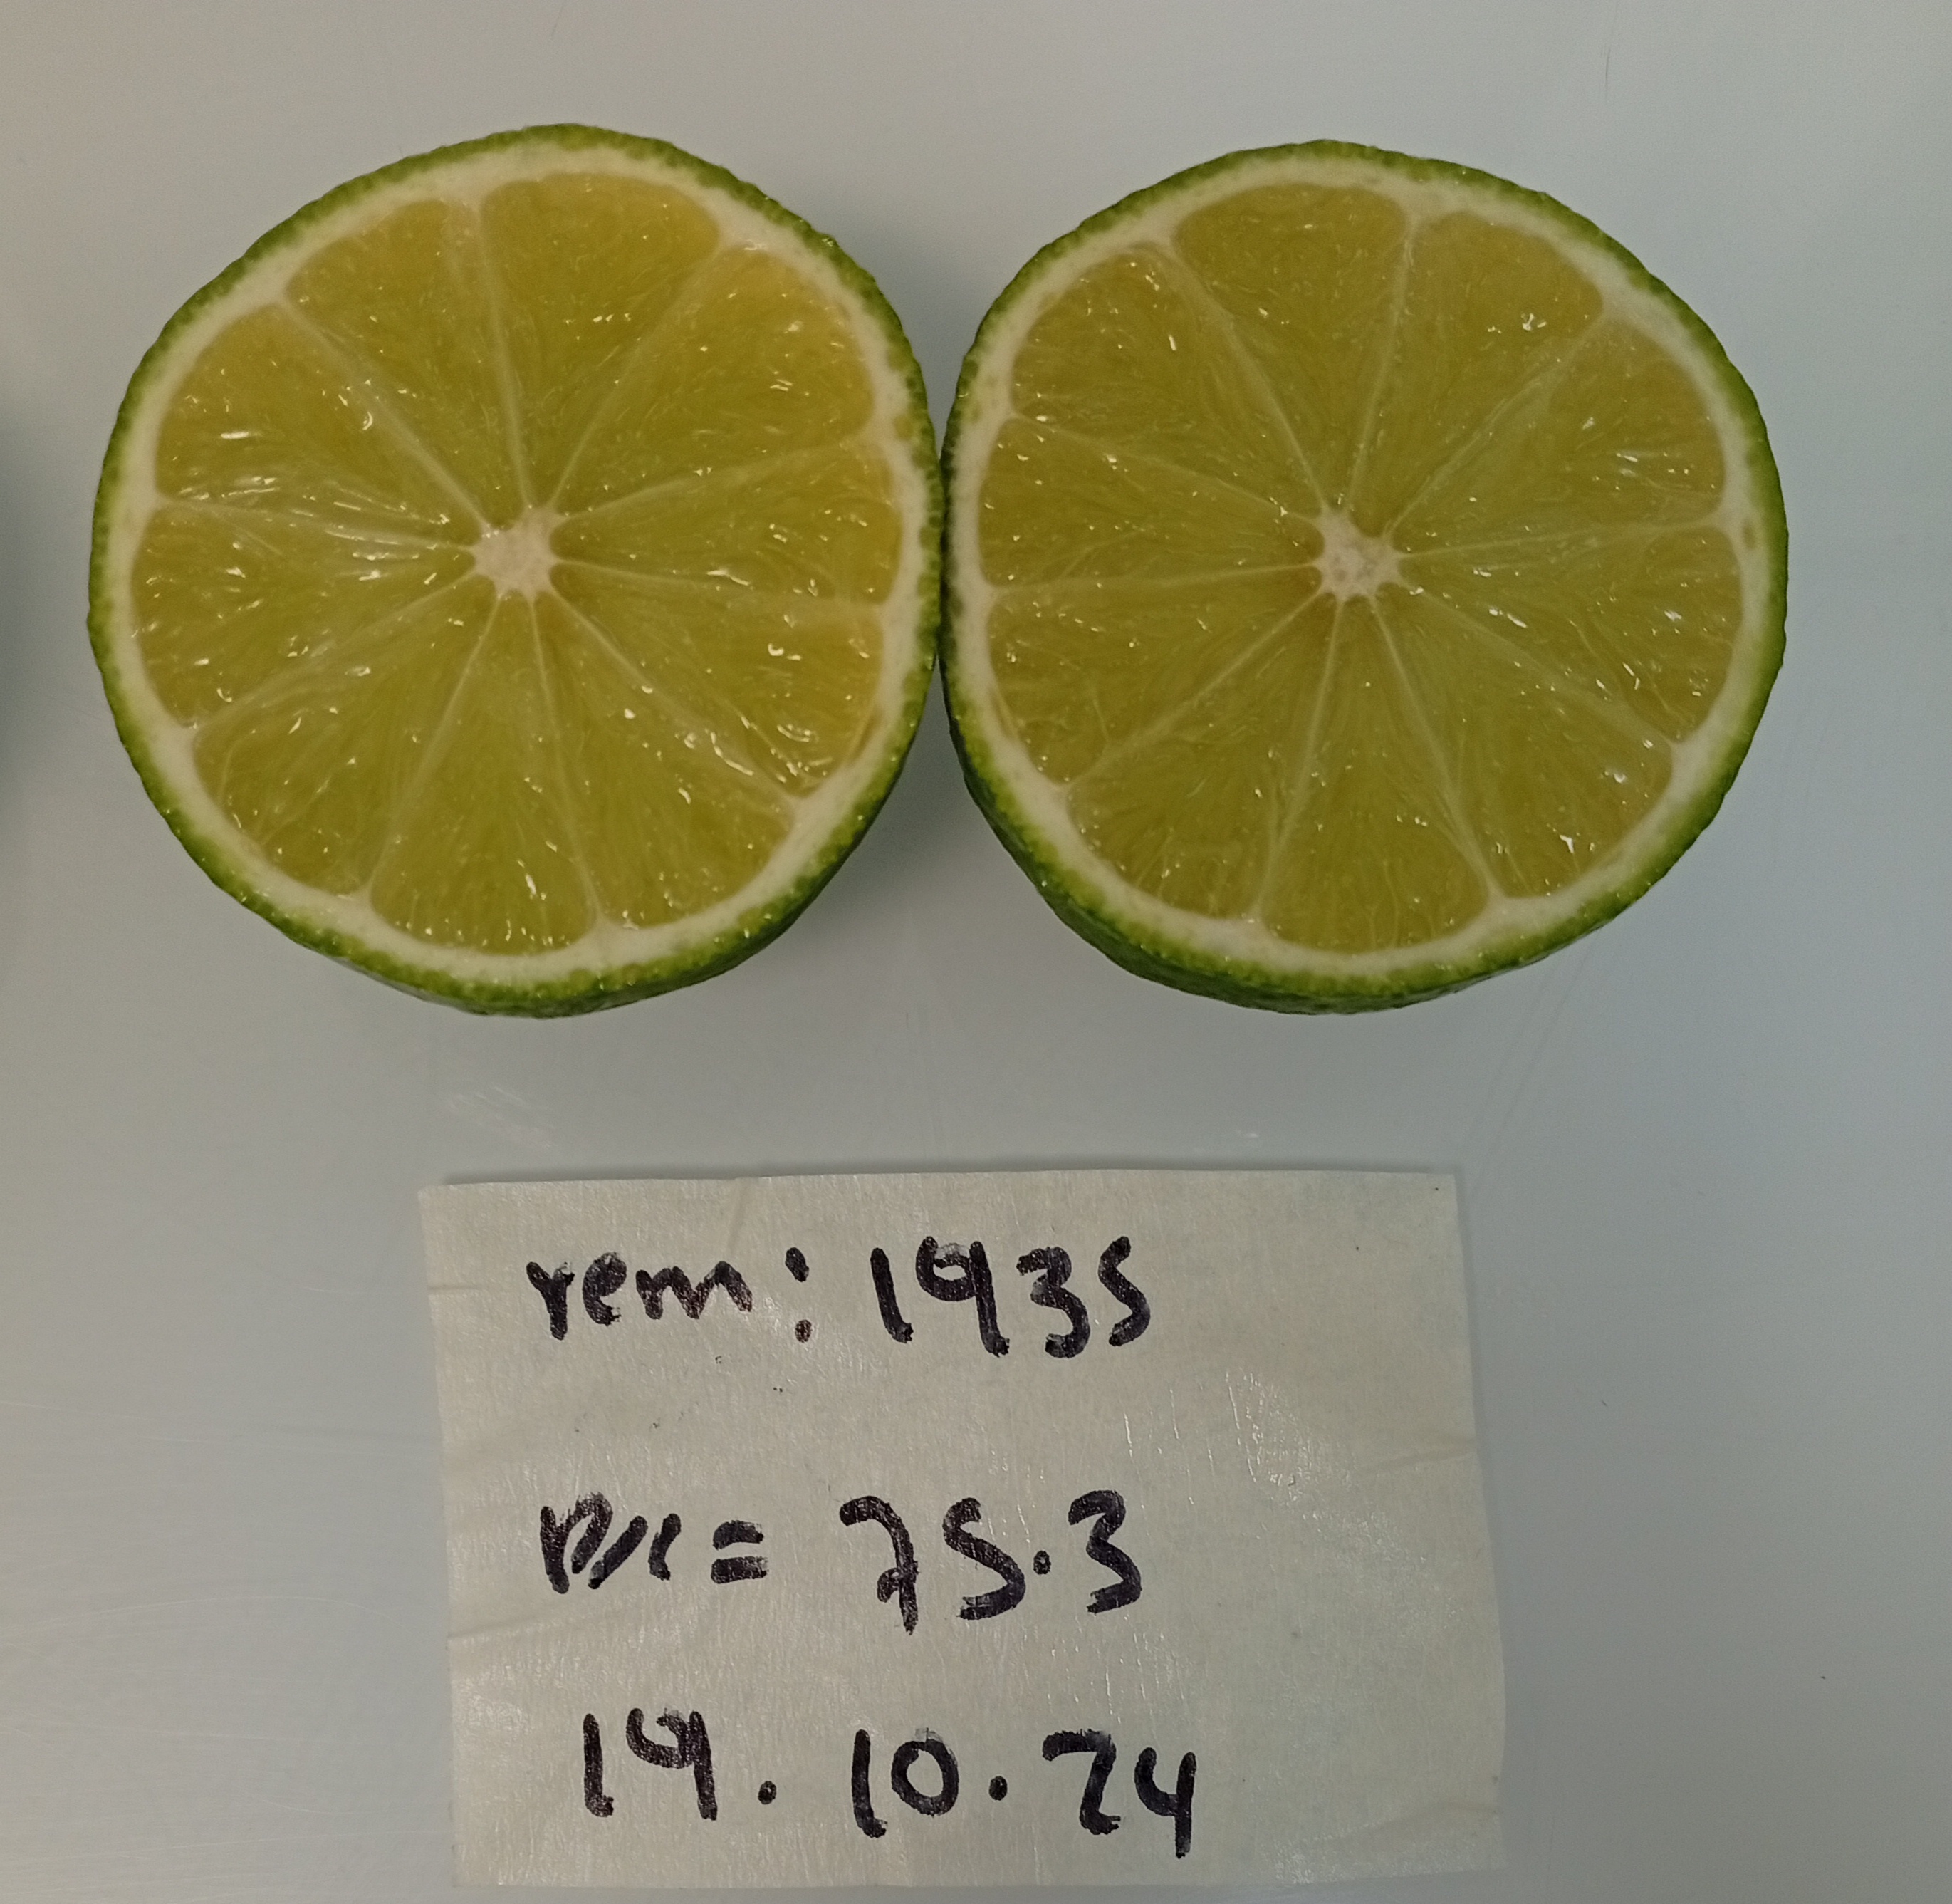 rem: 1935
= 75.3
19.10.24